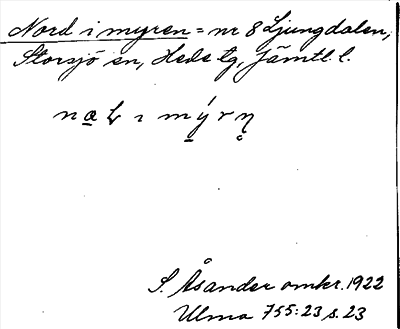 Nord i myren = nr 8 Ljungdalen,
Storsjö sn, Hede tg, Jämtl. l.
i mýrn̥
S. Åsander omkr. 1922
Ulma 755:23 s. 23